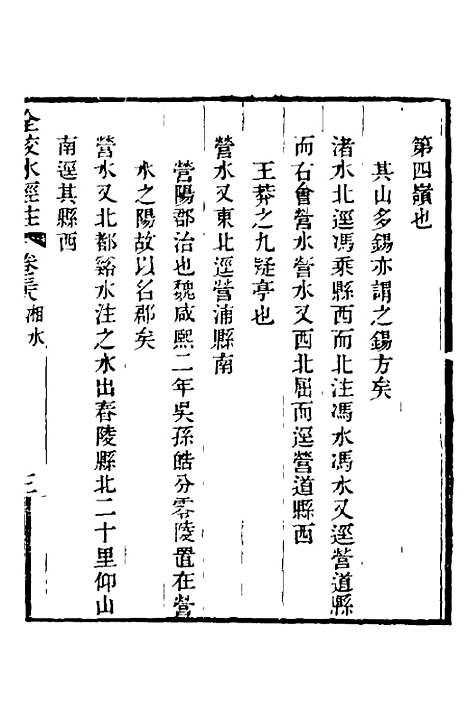 第四嶺也
其山多錫亦謂之錫方矣
渚水北逕馮乗縣西而北注馮水馮水又逕營道縣
而右會營水營水又西北屈而逕營道縣西
王莽之九疑亭也
營水又東北逕營浦縣南
營陽郡治也魏咸熙二年吳孫皓分零陵置在營
水之陽故以名郡矣
營水又北都谿水注之水出舂陵縣北二十里仰山
南逕其縣西
全校水經注 卷三八 湘水 三